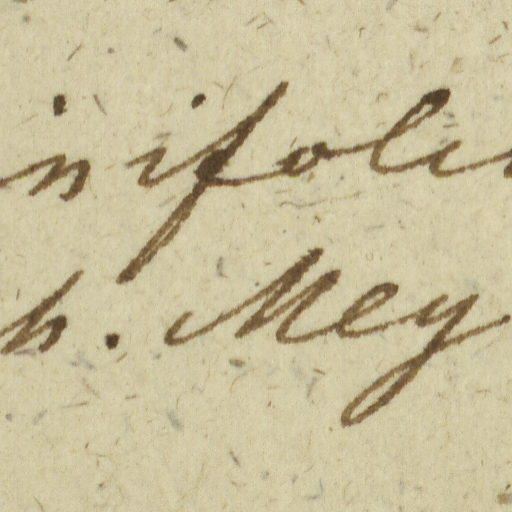 inifoli
h. Mey